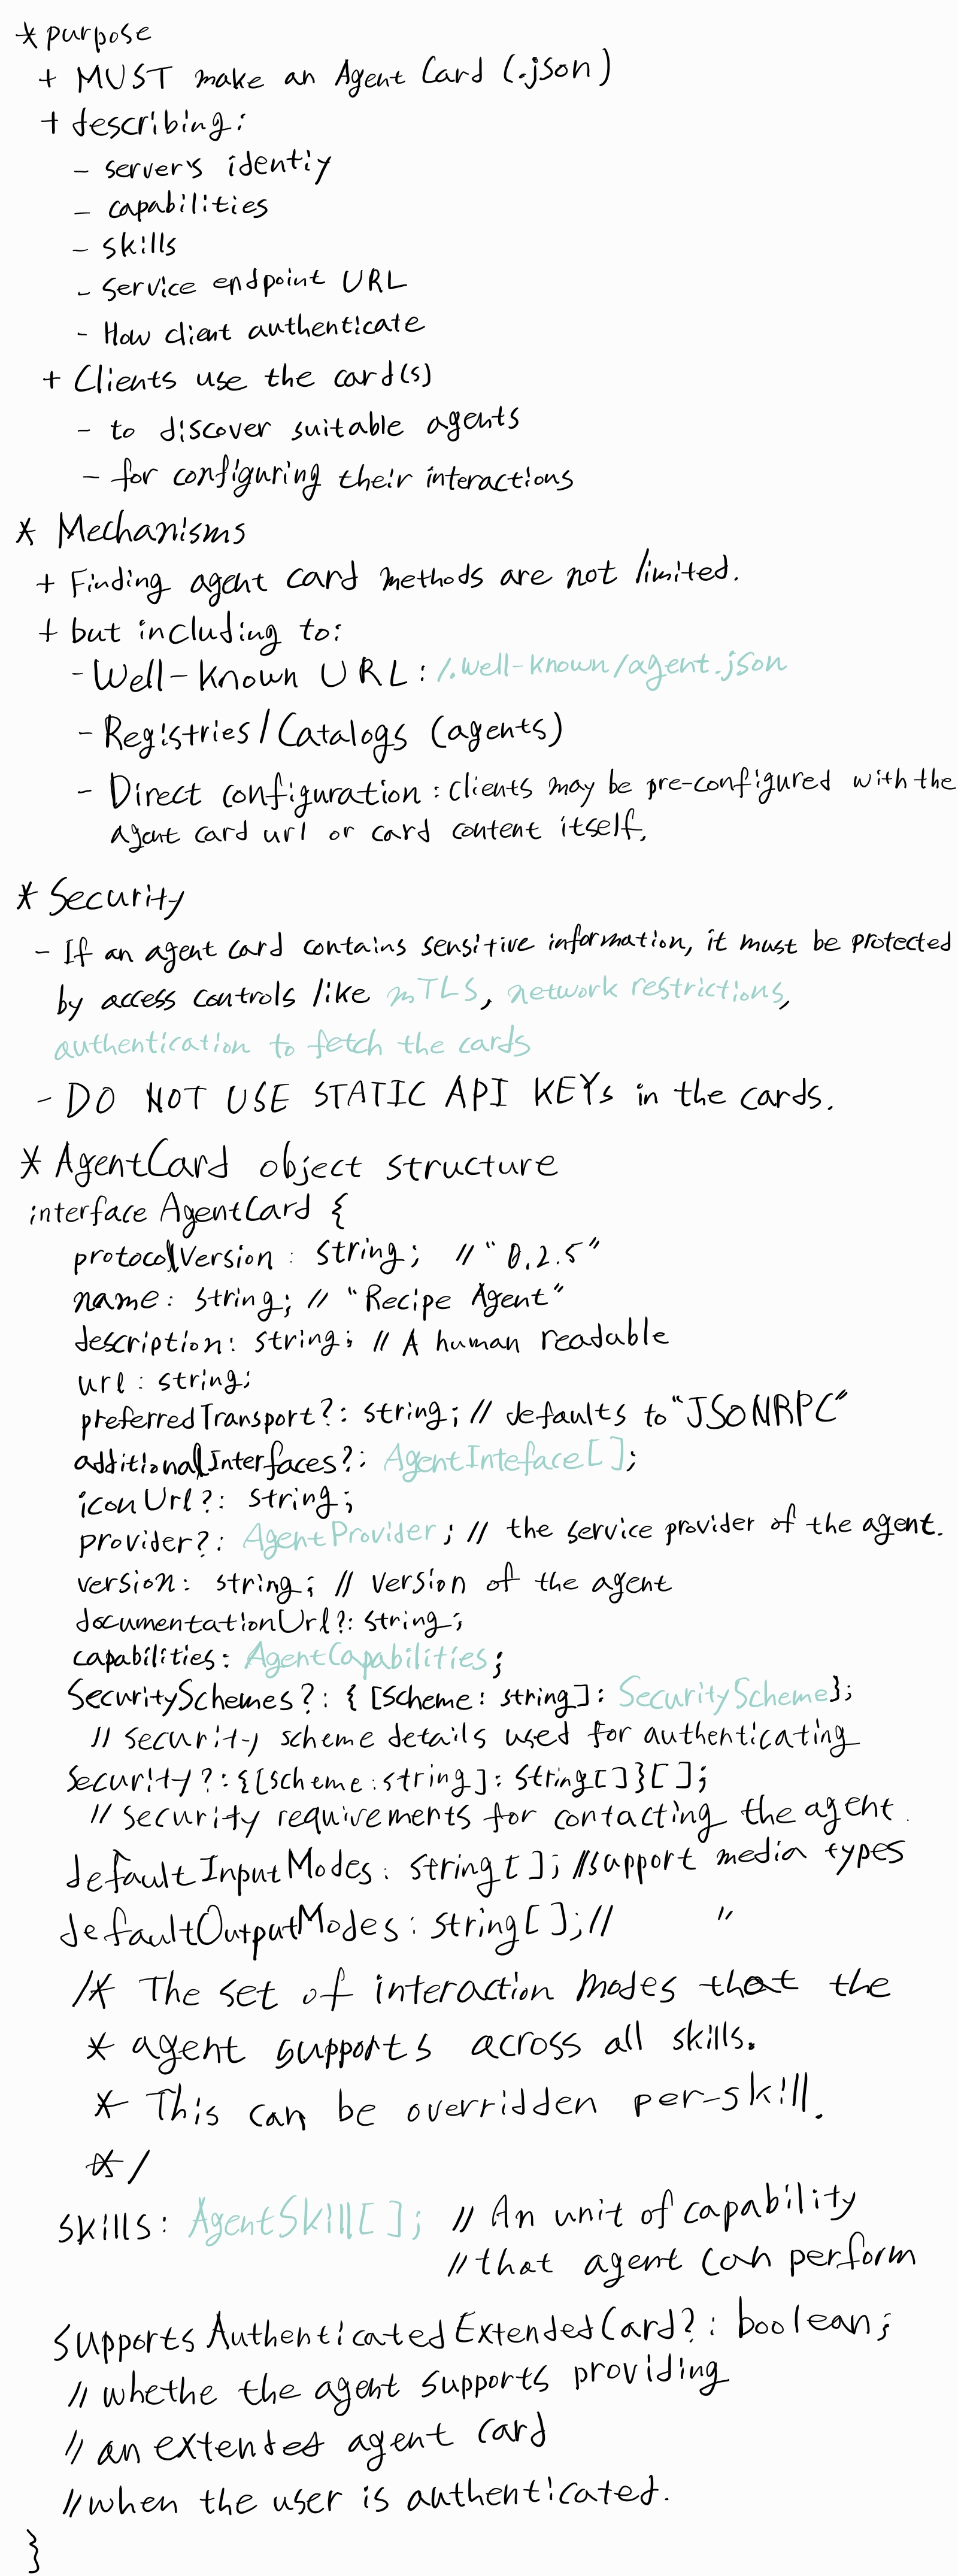 * purpose
+ MUST make an Agent Card (.json)
+ describing:
- server's identiy
- capabilities
- skills
- service endpoint URL
- How client authenticate
+ Clients use the card(s)
- to discover suitable agents
- for configuring their interactions
* Mechanisms
+ Finding agent card methods are not limited.
+ but including to:
- Well-Known URL: /.well-known/agent.json
- Registries/Catalogs (agents)
- Direct configuration: clients may be pre-configured with the
agent card url or card content itself.
* Security
- If an agent card contains sensitive information, it must be protected
by access controls like mTLS, network restrictions,
authentication to fetch the cards
- DO NOT USE STATIC API KEYs in the cards.
* AgentCard object structure
interface AgentCard {
protocolVersion: string; // "0.2.5"
name: string; // "Recipe Agent"
description: string; // A human readable
url: string;
preferredTransport?: string; // defaults to "JSONRPC"
additionalInterfaces?: AgentInteface[];
iconUrl?: string;
provider?: AgentProvider; // the service provider of the agent.
version: string; // version of the agent
documentationUrl?: string;
capabilities: AgentCapabilities;
securitySchemes?: { [scheme: string]: SecurityScheme};
// security scheme details used for authenticating
security?: {[scheme: string]: string[]}[];
// security requirements for contacting the agent.
defaultInputModes: string[]; //support media types
defaultOutputModes: string[]; // "
/* The set of interaction modes that the
* agent supports across all skills.
* This can be overridden per-skill.
*/
skills: AgentSkill[]; // An unit of capability
// that agent can perform
supportsAuthenticatedExtendedCard?: boolean;
// whethe the agent supports providing
// an extended agent card
// when the user is authenticated.
}